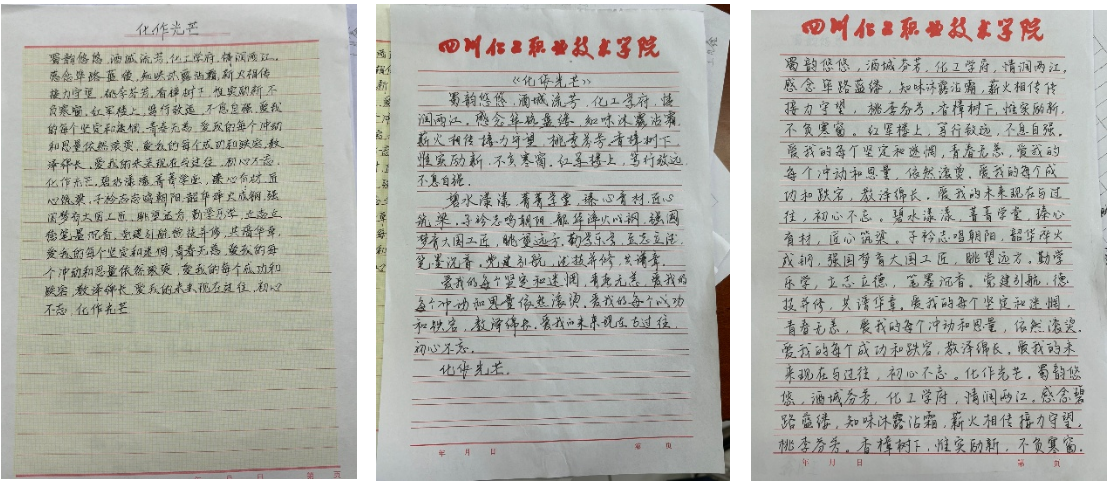 化作光芒
蜀韵悠悠,酒城流芳,化工学府,情润两江。
感念筚路蓝缕,知味沐露沾霜,薪火相传
接力守望,桃李芬芳,香樟树下,惟实励新不
负寒窗,红军楼上,笃行致远,不息自强,爱我
的每个坚定和迷惘,青春无恙,爱我的每个冲动
和思量依然滚烫,爱我的每个成功和跌宕,教
泽绵长,爱我的未来现在与过往,初心不忘,
化作光芒,碧水漾漾菁菁学堂,臻心育材,匠
心筑梁,子衿志鸣朝阳,韶华淬火成钢,强
国梦有大国工匠,眺望远方,勤学乐学,立志立
德笔墨沉香,党建引航德技并修,共谱华章,
爱我的每个坚定和迷惘,青春无恙,爱我的每
个冲动和思量依然滚烫,爱我的每个成功和
跌宕,教泽绵长,爱我的未来现在过往,初心
不忘,化作光芒
年 月 日 第 页
四川化工职业技术学院
《化作光芒》
蜀韵悠悠,酒城流芳,化工学府,情
润两江。感念筚路蓝缕,知味沐露沾霜,
薪火相传接力守望,桃李芬芳,香樟树下,
惟实励新,不负寒窗,红军楼上,笃行致远,
不息自强。
碧水漾漾,菁菁学堂,臻心育材,匠心
筑梁,子衿志鸣朝阳,韶华淬火成钢,强国
梦有大国工匠,眺望远方,勤学乐学,立志立德,
笔墨沉香,党建引航,德技并修,共谱章。
爱我的每个坚定和迷惘,青春无恙,爱我的
每个冲动和思量依然滚烫,爱我的每个成功
和跌宕,教泽绵长,爱我的未来现在与过往,
初心不忘。
化作光芒。
年 月 日 第 页
四川化工职业技术学院
蜀韵悠悠,酒城芬芳,化工学府,情润两江,
感念筚路蓝缕,知味沐露沾霜,薪火相传传
接力守望,桃李芬芳。香樟树下,惟实励新,
不负寒窗。红军楼上,笃行致远,不息自强。
爱我的每个坚定和迷惘,青春无恙,爱我的
每个冲动和思量,依然滚烫。爱我的每个成
功和跌宕,教泽绵长。爱我的未来现在与过
往,初心不忘。碧水漾漾,菁菁学堂,臻心
育材,匠心筑梁。子衿志鸣朝阳,韶华淬火
成钢,强国梦有大国工匠,眺望远方。勤学
乐学,立志立德,笔墨沉香。党建引航,德
技并修,共谱华章。爱我的每个坚定和迷惘,
青春无恙,爱我的每个冲动和思量,依然滚烫。
爱我的每个成功和跌宕,教泽绵长。爱我的未
来现在与过往,初心不忘。化作光芒。蜀韵悠
悠,酒城芬芳,化工学府,情润两江,感念
路蓝缕,知味沐露沾霜,薪火相传接力守望,
桃李芬芳。香樟树下,惟实励新,不负寒窗。
年 月 日 第 页